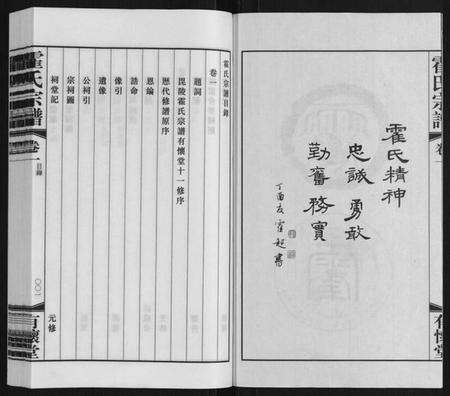 霍氏宗譜
卷一
有懷堂
霍氏精神
忠誠 勇敢
勤奮 務實
丁酉 霍 書
霍氏宗譜目錄
卷一
題詞
毘陵霍氏宗譜有懷堂十一修序
歷代修譜原序
恩綸
誥命
像引
遺像
公祠引
宗祠圖
祠堂記
霍氏宗譜
卷一
目錄
〇〇一
元修
有懷堂